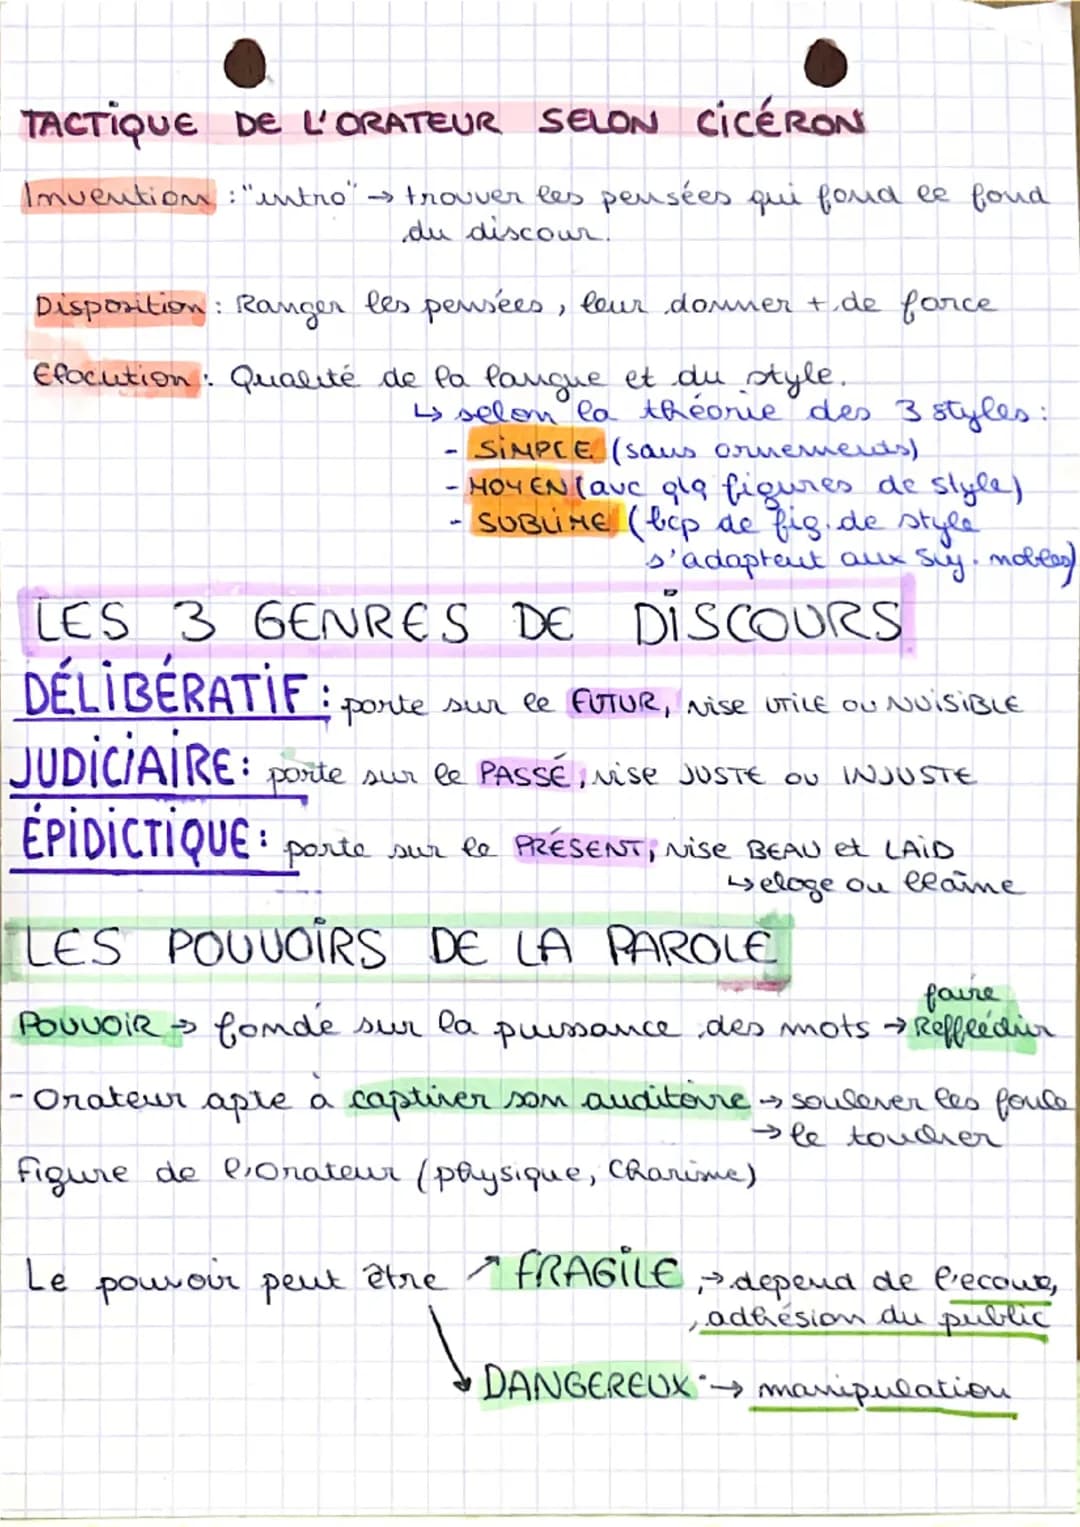 TACTIQUE DE L'ORATEUR SELON CICÉRON
Invention : "intro" → trouver les pensées qui fond le fond
du discour.
Disposition : Ranger les pensées, leur donner + de force
Elocution : Qualité de la langue et du style.
↳ selon la théorie des 3 styles :
- SIMPLE (sans ornements)
- MOYEN (avc qlq figures de style)
- SUBLIME (bcp de fig. de style
s'adaptent aux suj. nobles)
LES 3 GENRES DE DISCOURS
DÉLIBÉRATIF : porte sur le FUTUR, vise UTILE OU NUISIBLE
JUDICIAIRE : porte sur le PASSÉ, vise JUSTE OU INJUSTE
ÉPIDICTIQUE : porte sur le PRÉSENT, vise BEAU et LAID
↳ eloge ou blâme
LES POUVOIRS DE LA PAROLE
faire
POUVOIR → fondé sur la puissance des mots → Refléchir
- Orateur apte à captiver son auditoire → soulever les foule
→ le toucher
Figure de l'orateur (physique, Charisme)
Le pouvoir peut être ↗ FRAGILE, → depend de l'ecoute,
adhésion du public
↘ DANGEREUX → manipulation